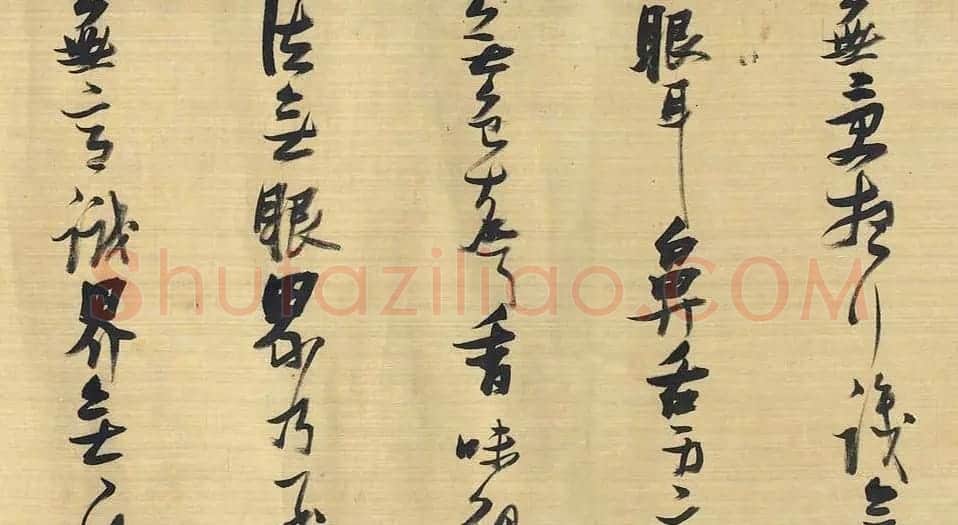 無受想行識無
眼耳鼻舌身意
無色聲香味觸
法無眼界乃至
無意識界無
Shufaziliao.COM